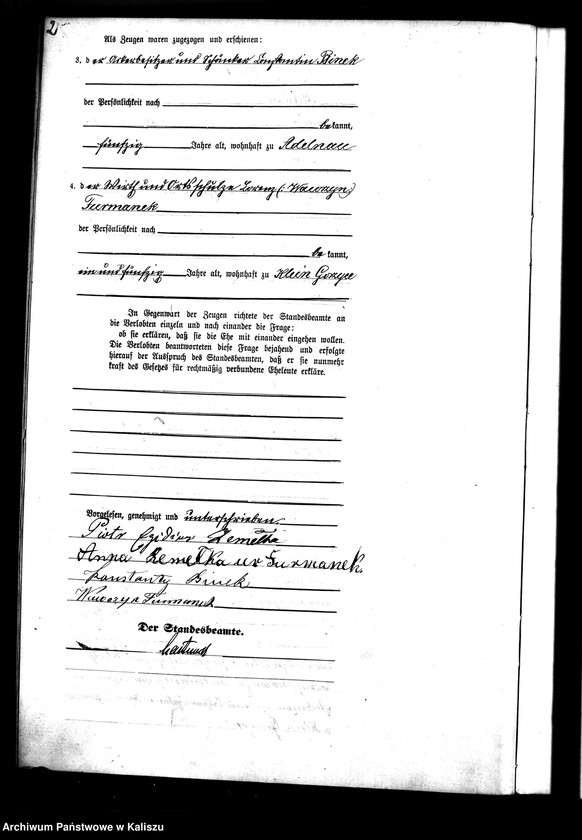 2
Als Zeugen waren zugezogen und erschienen:
3. der Ackerbesitzer und Schänker Constantin Binek
der Persönlichkeit nach
bekannt,
fünfzig Jahre alt, wohnhaft zu Adelnau
4. der Wirth und Ortsschulze Lorenz (: Wawrzyn :)
Furmanek
der Persönlichkeit nach
bekannt,
ein und fünfzig Jahre alt, wohnhaft zu Klein Gorzyce
In Gegenwart der Zeugen richtete der Standesbeamte an
die Verlobten einzeln und nach einander die Frage:
ob sie erklären, daß sie die Ehe mit einander eingehen wollen.
Die Verlobten beantworteten diese Frage bejahend und erfolgte
hierauf der Ausspruch des Standesbeamten, daß er sie nunmehr
kraft des Gesetzes für rechtmäßig verbundene Eheleute erkläre.
Vorgelesen, genehmigt und unterschrieben.
Piotr Egidius Zemełka
Anna Zemełka ur Furmanek.
Konstanty Binek
Wawrzyn Furmanek
Der Standesbeamte.
Archiwum Państwowe w Kaliszu